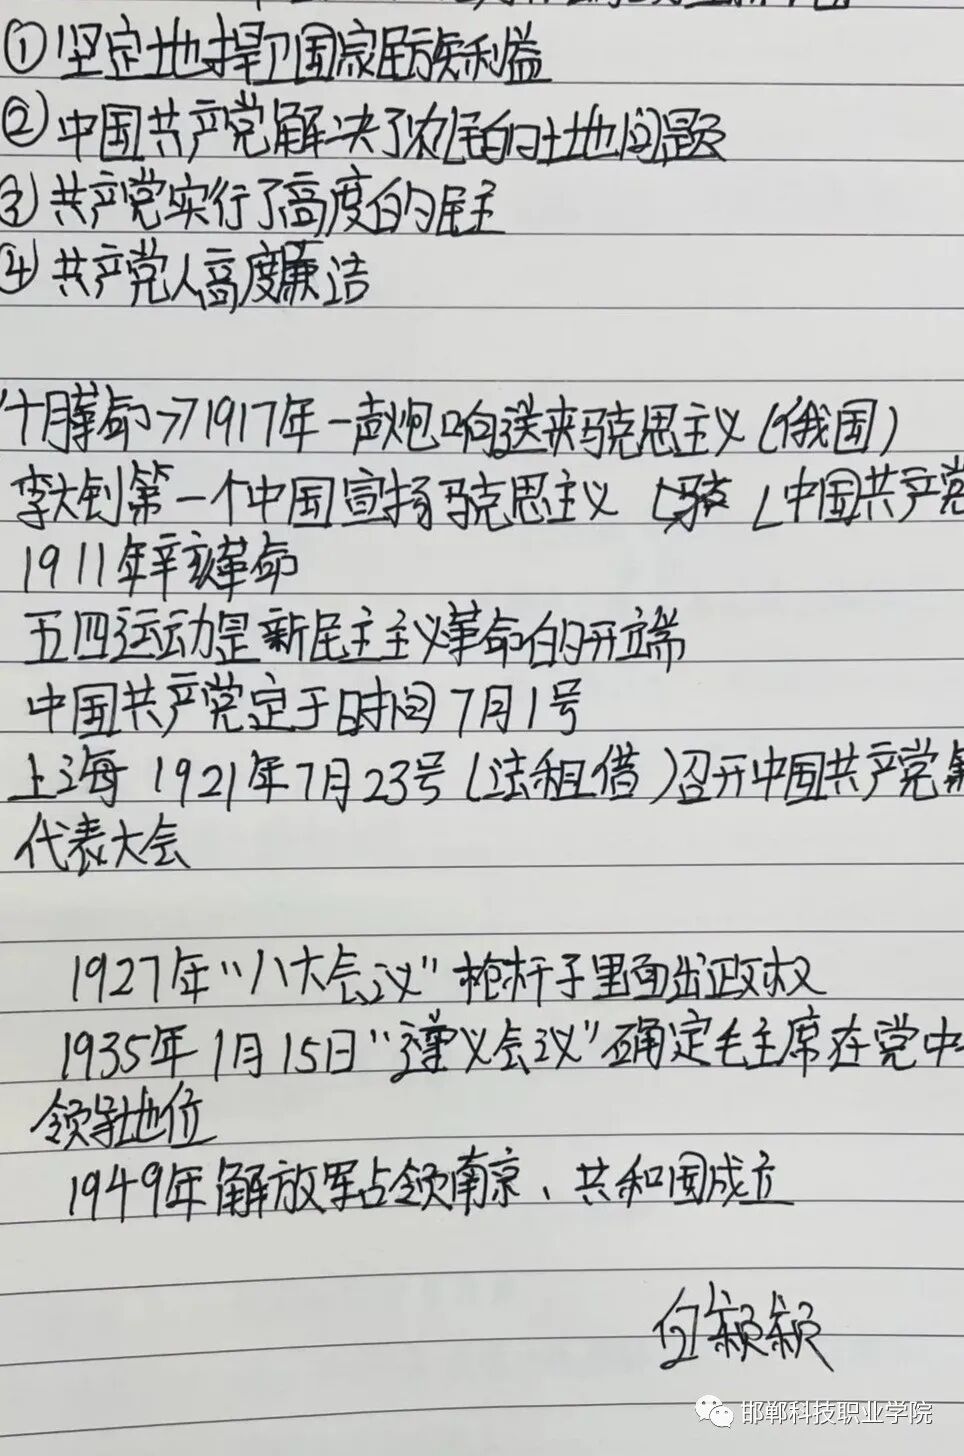 ①坚定地捍卫国家民族利益
②中国共产党解决了农民的土地问题
③共产党实行了高度的民主
④共产党人高度廉洁
十月革命→1917年一声炮响送来马克思主义(俄国)
李大钊第一个中国宣扬马克思主义 中国共产党
1911年辛亥革命
五四运动是新民主主义革命的开端
中国共产党定于时间7月1号
上海 1921年7月23号(法租借)召开中国共产党第
代表大会
1927年"八大会议"枪杆子里面出政权
1935年1月15日"遵义会议"确定毛主席在党中
领导地位
1949年解放军占领南京、共和国成立
白颖颖
邯郸科技职业学院